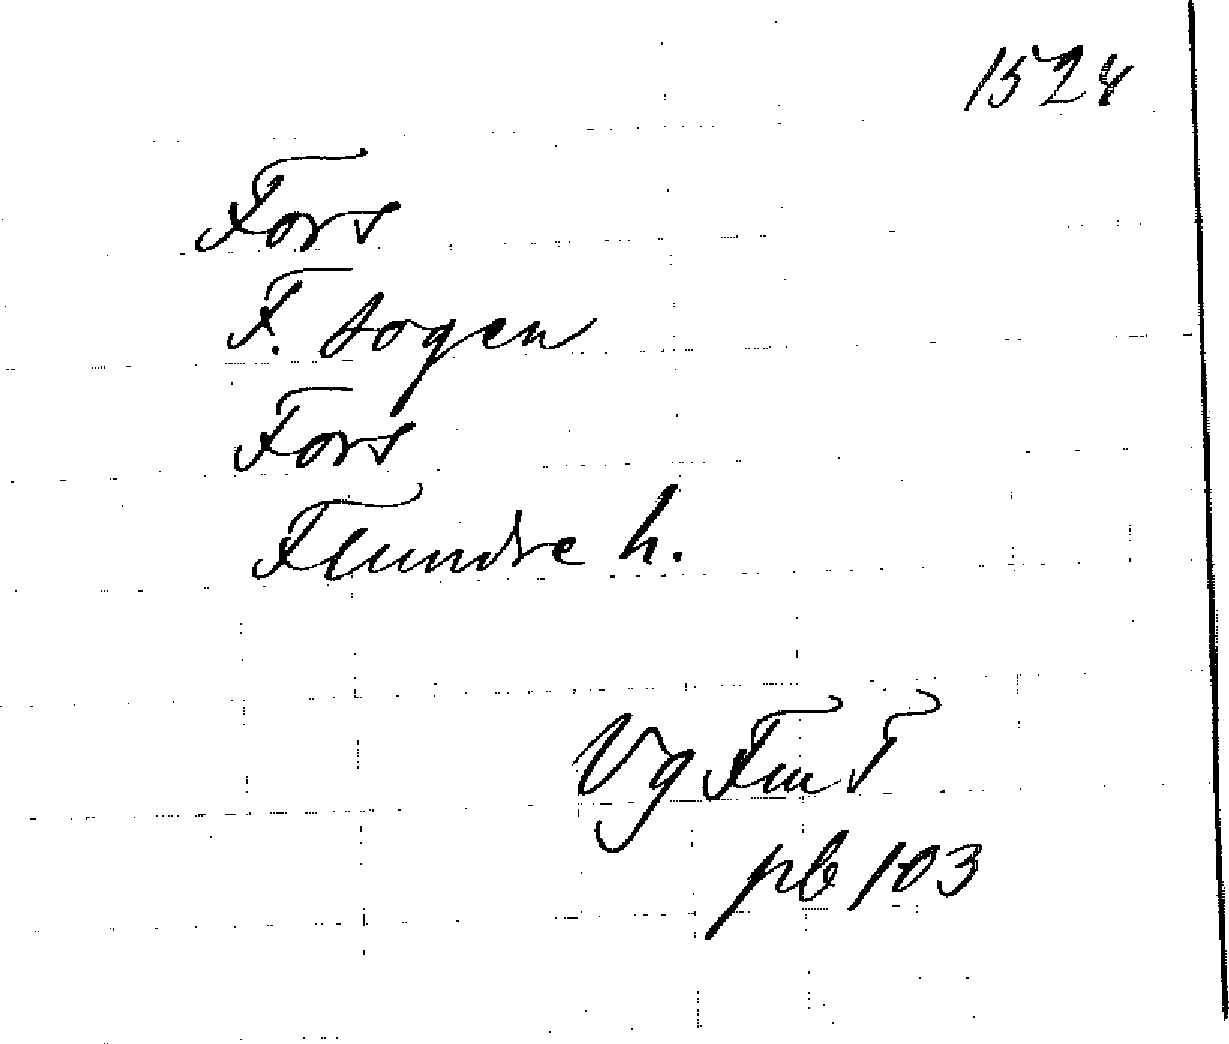 1528
Fors
F. sogen
Fors
Flundre h.
Vg Fm T
pb 103